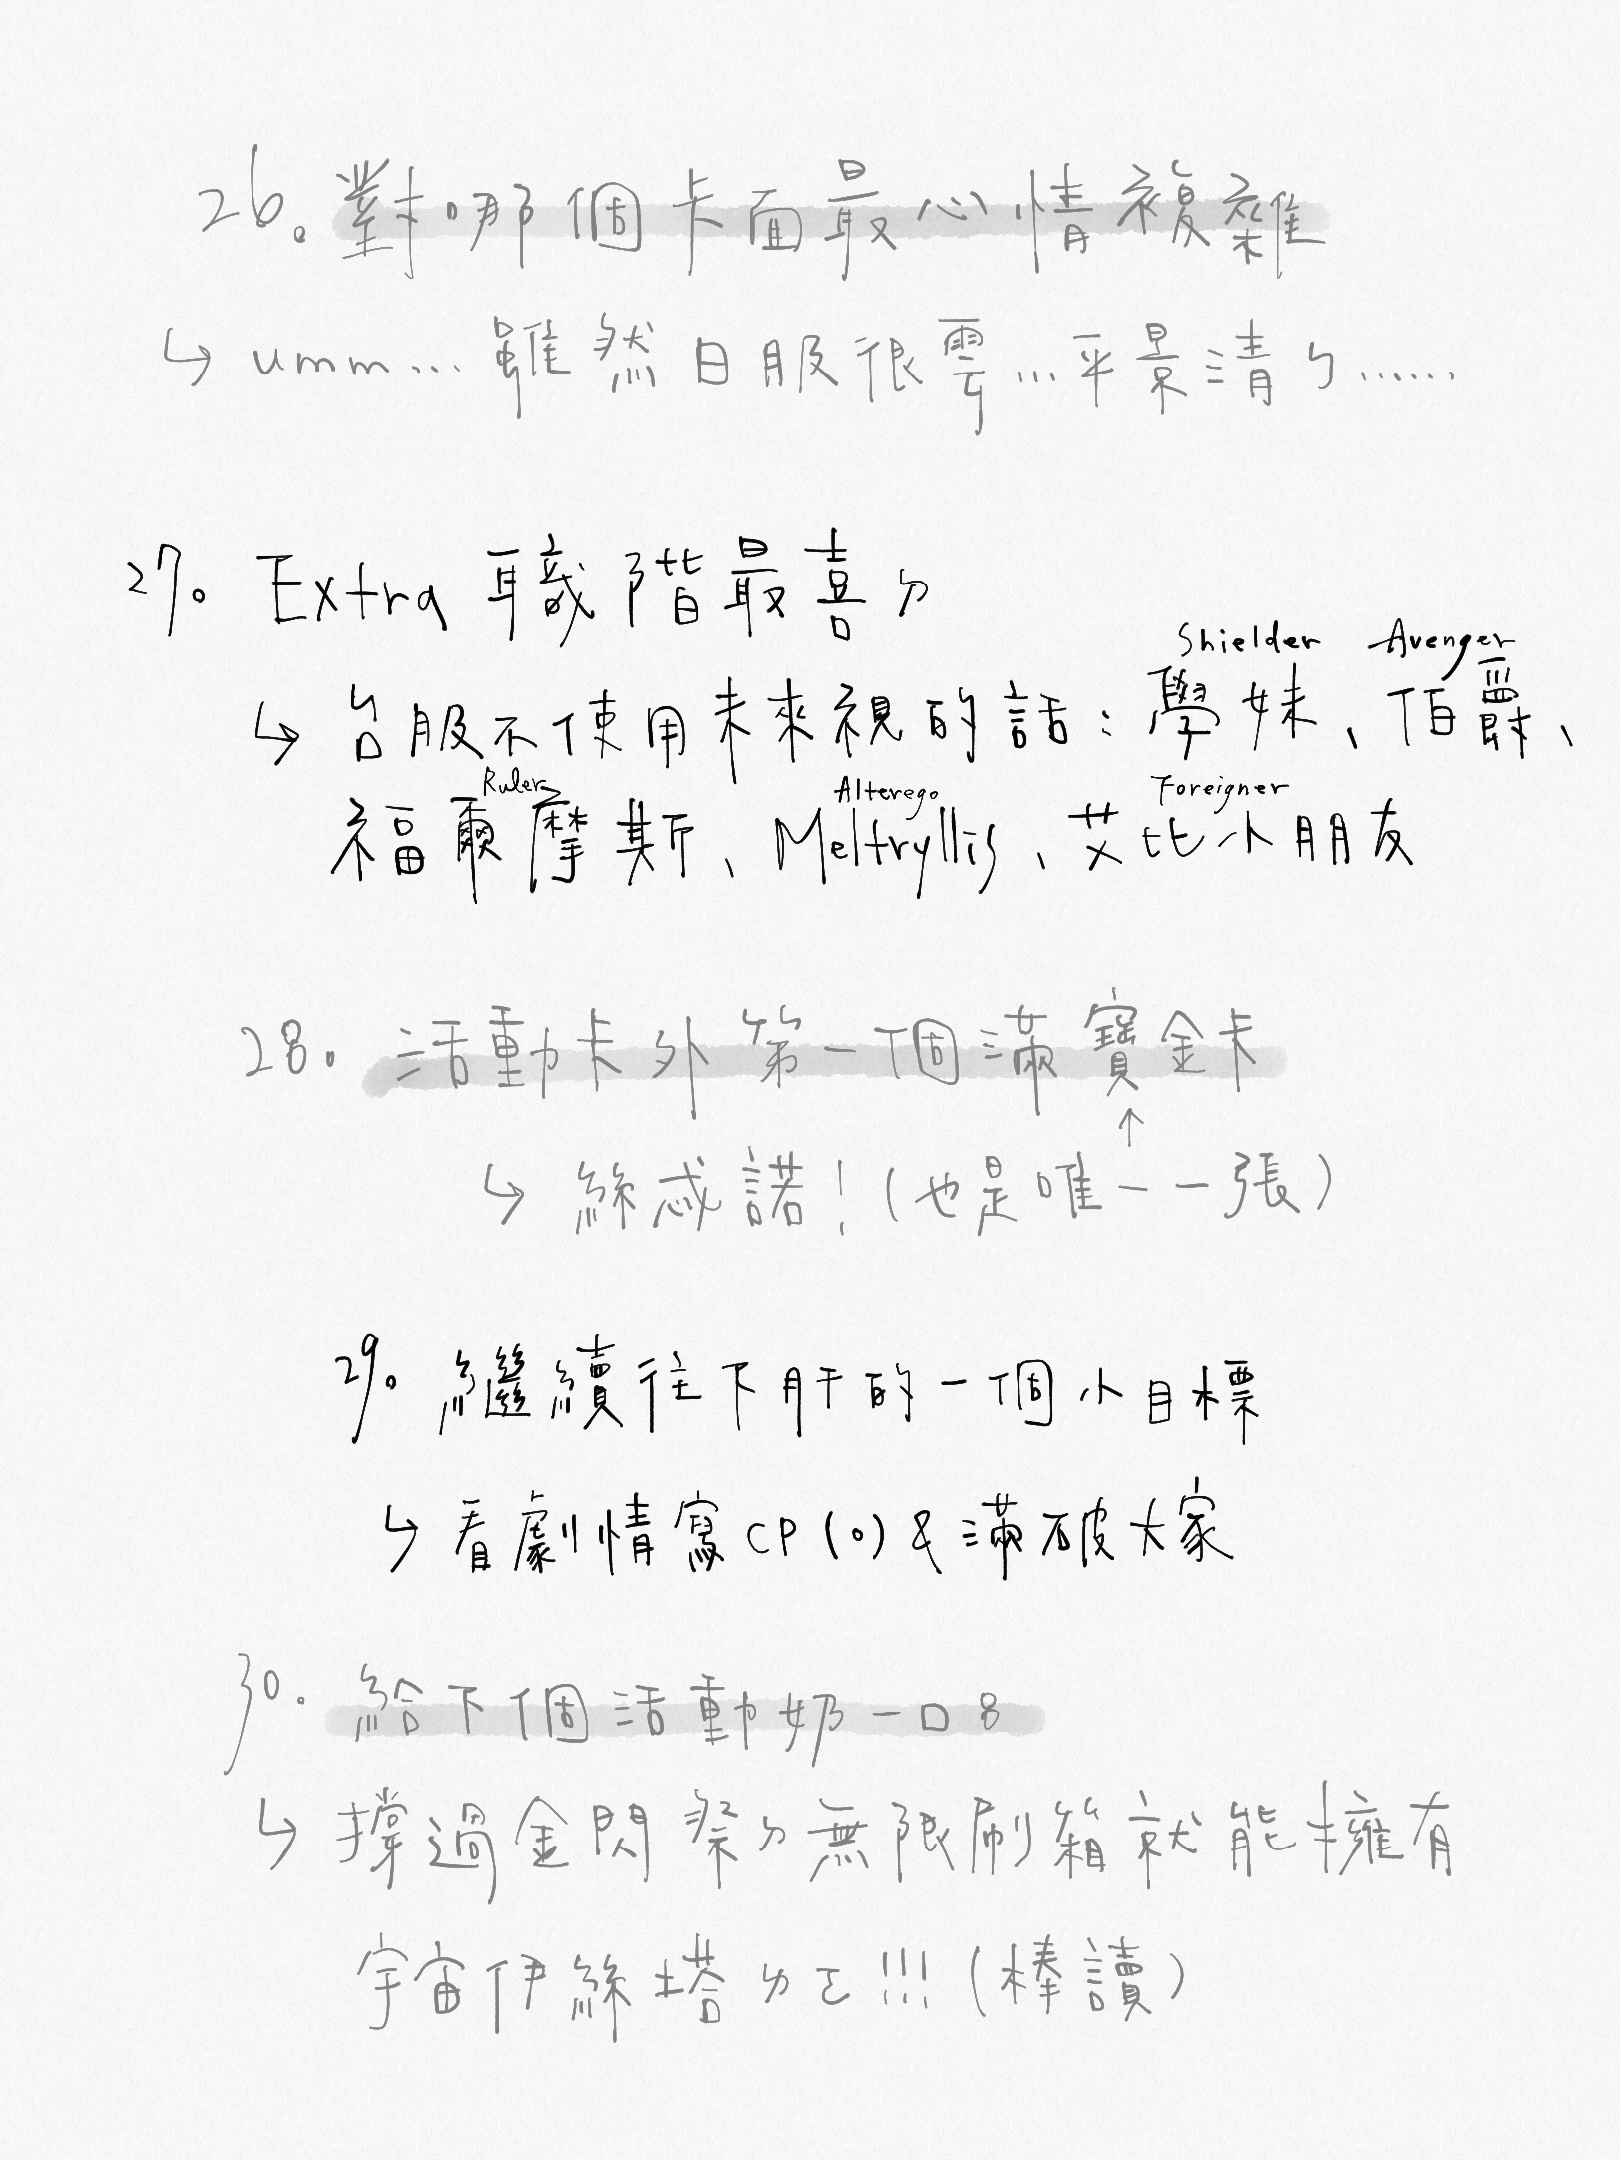 26. 對哪個卡面最心情複雜
↳ umm... 雖然日服很雲...平景清ㄅ......
27. Extra 職階最喜ㄉ
Shielder Avenger
↳ 台服不使用未來視的話：學妹、伯爵、
Ruler Alterego Foreigner
福爾摩斯、Meltryllis、艾比小朋友
28. 活動卡外第一個滿寶金卡
↑
↳ 絲忒諾！(也是唯一一張)
29. 繼續往下肝的一個小目標
↳ 看劇情寫CP(o)&滿破大家
30. 給下個活動奶一口8
↳ 撐過金閃祭ㄉ無限刷箱就能擁有
宇宙伊絲塔ㄉㄛ!!!(棒讀)